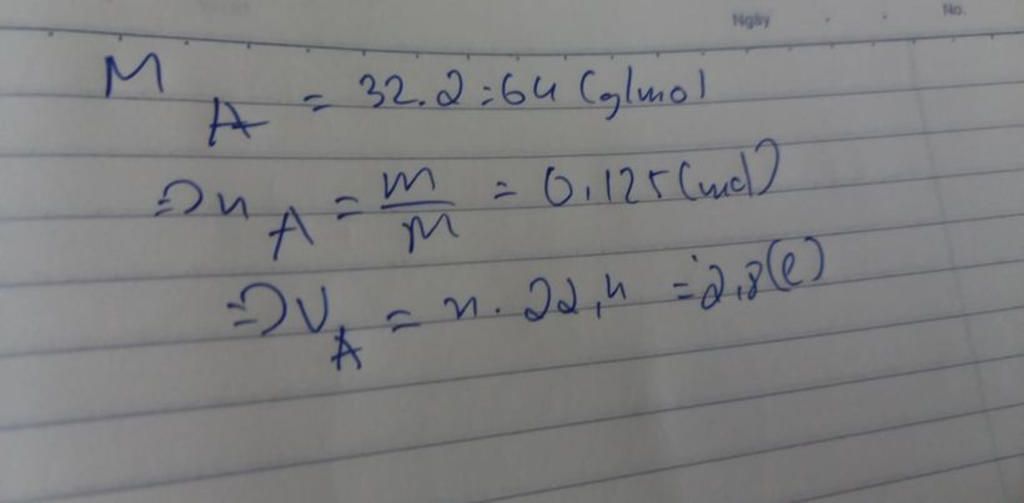 Ngày No.
M A = 32.2=64 (g/mol
=> n A = m/M = 0,125(mol)
=> V A = n. 22,4 = 2,8(l)